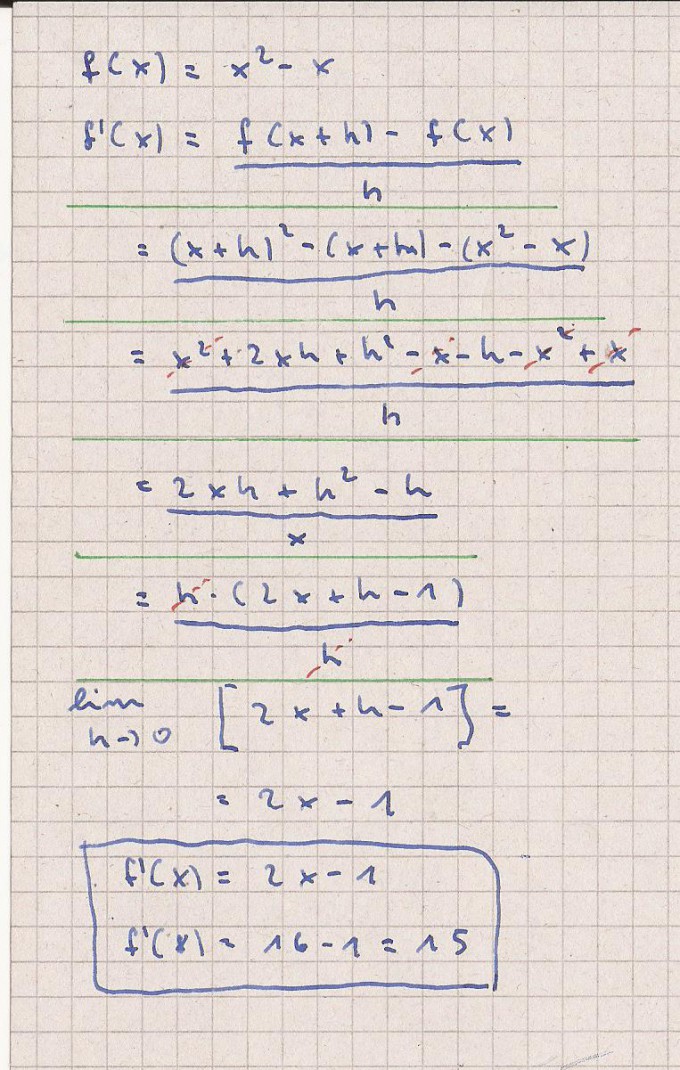 f(x) = x² - x
f'(x) = f(x+h) - f(x)
h
= (x+h)² - (x+h) - (x² - x)
h
= x² + 2xh + h² - x - h - x² + x
h
= 2xh + h² - h
x
= h · (2x + h - 1)
h
lim [2x + h - 1] =
h→0
= 2x - 1
f'(x) = 2x - 1
f'(8) = 16 - 1 = 15